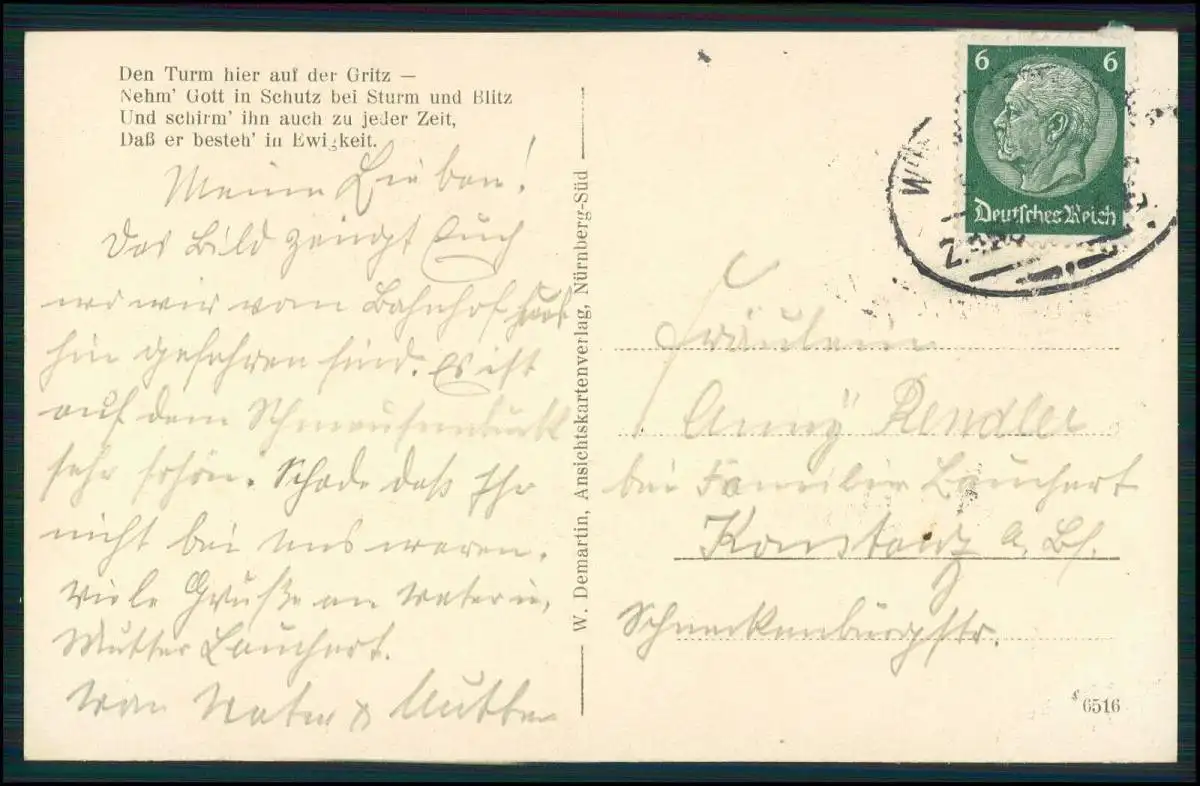 Den Turm hier auf der Gritz —
Nehm' Gott in Schutz bei Sturm und Blitz
Und schirm' ihn auch zu jeder Zeit,
Daß er besteh' in Ewigkeit.
Meine Lieben!
Das Bild zeugt Euch
wo wir vom Bahnhof
hin gefahren sind. Es ist
auf dem Schmausenbuck
sehr schön. Schade daß Ihr
nicht bei uns waren.
Viele Grüße an Vater u.
Mutter Lauchert.
Von Vater & Mutter
W. Demartin, Ansichtskartenverlag, Nürnberg-Süd
6 6
Deutsches Reich
Fräulein
Anny Rendler
bei Familie Lauchert
Konstanz a. Bs.
Schneckenburgstr.
6516